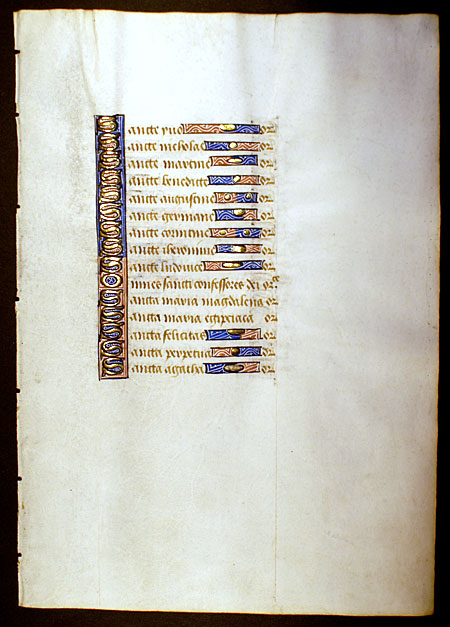 Sancte yuo or
Sancte nicholae or
Sancte martine or
Sancte benedicte or
Sancte augustine or
Sancte germane or
Sancte corentine or
Sancte iheronime or
Sancte ludouice or
Omnes sancti confessores dei or
Sancta maria magdalena or
Sancta maria egipciaca or
Sancta felicitas or
Sancta perpetua or
Sancta agatha or